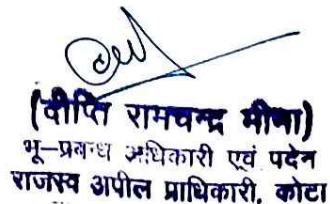 (दीप्ति रामचन्द्र मीणा)
भू-प्रबन्ध अधिकारी एवं पदेन
राजस्व अपील प्राधिकारी, कोटा